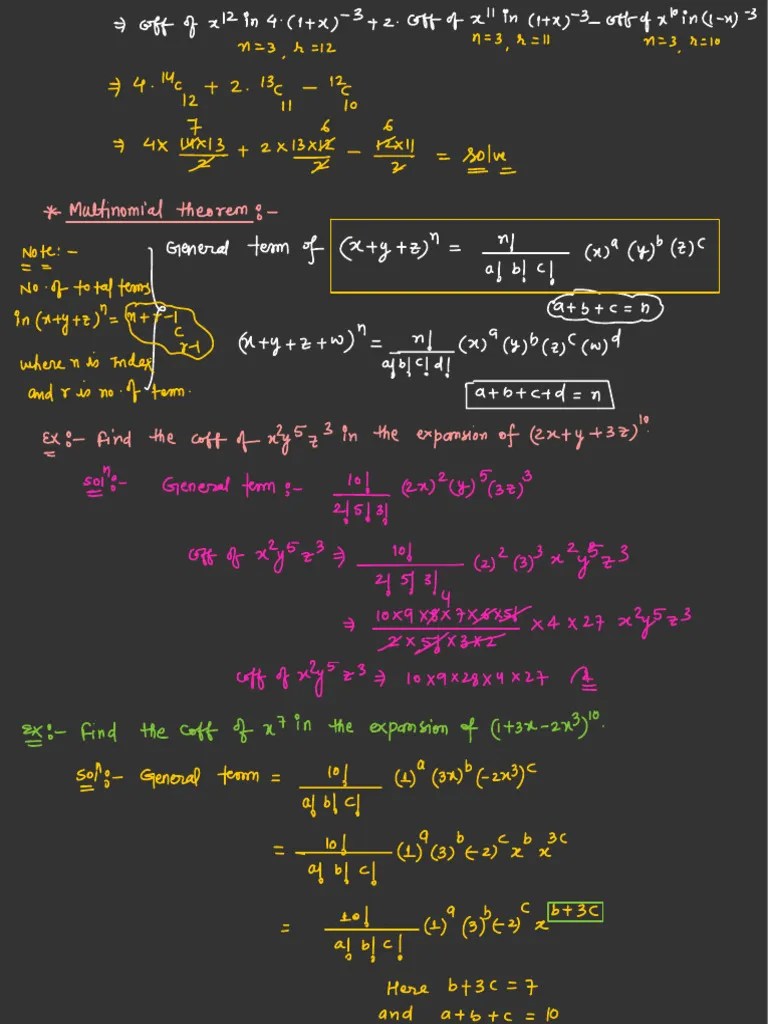 ⇒ coff of x^12 in 4·(1+x)^-3 + 2· coff of x^11 in (1+x)^-3 - coff of x^10 in (1-x)^-3
n=3, r=12 n=3, r=11 n=3, r=10
⇒ 4· ^14C_12 + 2· ^13C_11 - ^12C_10
7 6 6
⇒ 4× 14×13/2 + 2× 13×12/2 - 12×11/2 = solve
* Multinomial theorem:-
General term of (x+y+z)^n = n!/(a! b! c!) (x)^a (y)^b (z)^c
a+b+c = n
Note:-
No. of total terms
in (x+y+z)^n = ^(n+r-1)C_(r-1)
where n is Index
and r is no. of term.
(x+y+z+w)^n = n!/(a! b! c! d!) (x)^a (y)^b (z)^c (w)^d
a+b+c+d = n
Ex:- find the coff of x^2y^5z^3 in the expansion of (2x+y+3z)^10.
Sol^n:- General term:- 10!/(2! 5! 3!) (2x)^2 (y)^5 (3z)^3
coff of x^2y^5z^3 ⇒ 10!/(2! 5! 3!) (2)^2 (3)^3 x^2y^5z^3
4
⇒ (10×9×8×7×6×5!)/(2×5!×3×2) ×4×27 x^2y^5z^3
coff of x^2y^5z^3 ⇒ 10×9×28×4×27
Ex:- find the coff of x^7 in the expansion of (1+3x-2x^3)^10.
Sol^n:- General term = 10!/(a! b! c!) (1)^a (3x)^b (-2x^3)^c
= 10!/(a! b! c!) (1)^a (3)^b (-2)^c x^b x^3c
= 10!/(a! b! c!) (1)^a (3)^b (-2)^c x^(b+3c)
Here b+3c = 7
and a+b+c = 10